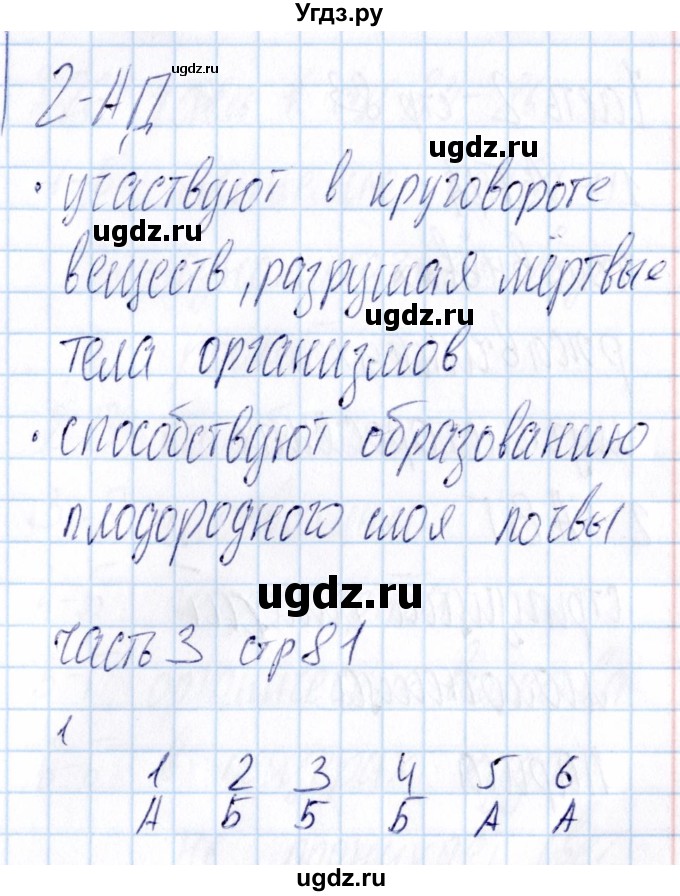 Угдз.ру
ugdz.ru
2-АД
ugdz.ru
• участвуют в круговороте
ugdz.ru
веществ, разрушая мёртвые
ugdz.ru
тела организмов
• способствуют образованию
плодородного слоя почвы
ugdz.ru
часть 3 стр 81
1
1 2 3 4 5 6
А Б Б Б А А
ugdz.ru